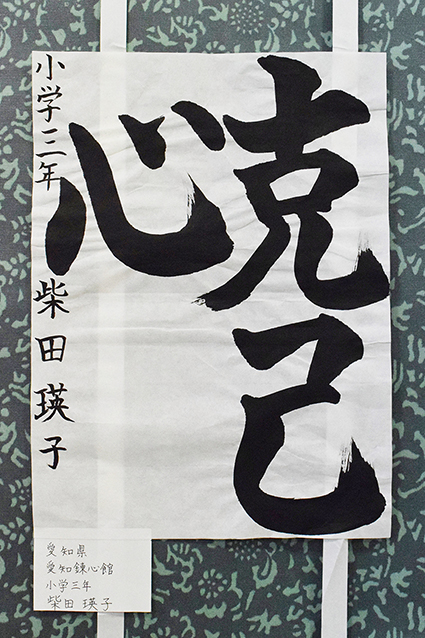 克己
心
小学三年 柴田瑛子
愛知県
愛知錬心館
小学三年
柴田 瑛子